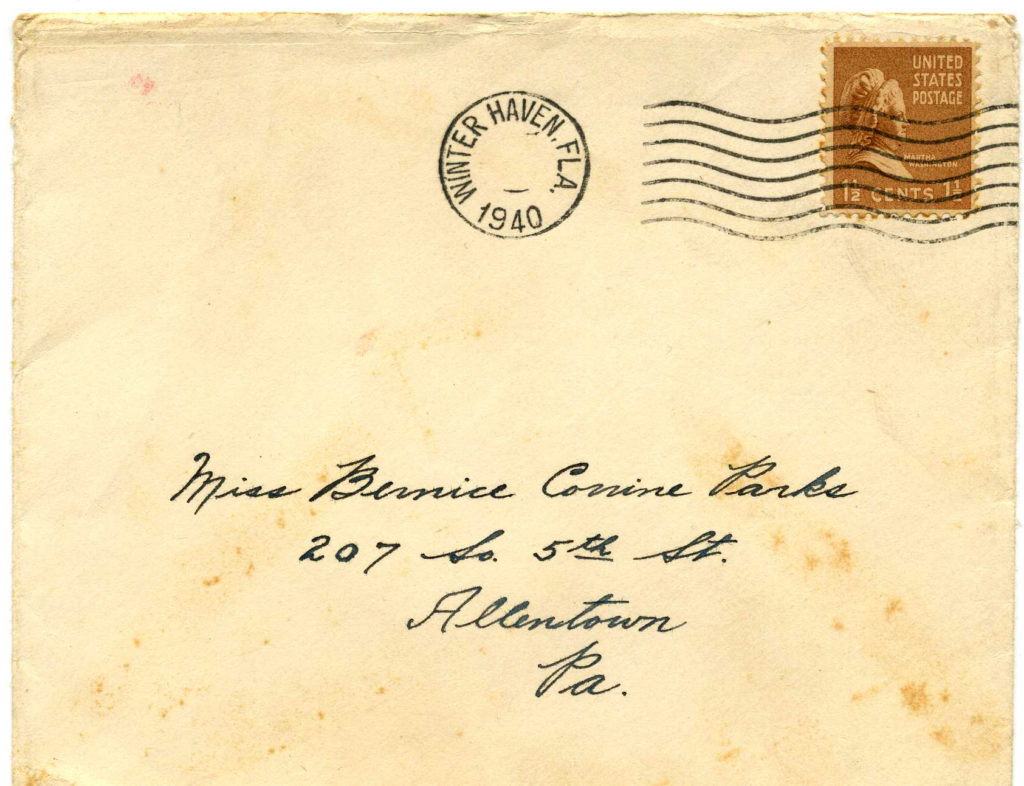 WINTER HAVEN, FLA.
1940
UNITED
STATES
POSTAGE
MARTHA
WASHINGTON
1½ CENTS 1½
Miss Bernice Corrine Parks
207 So. 5th St.
Allentown
Pa.